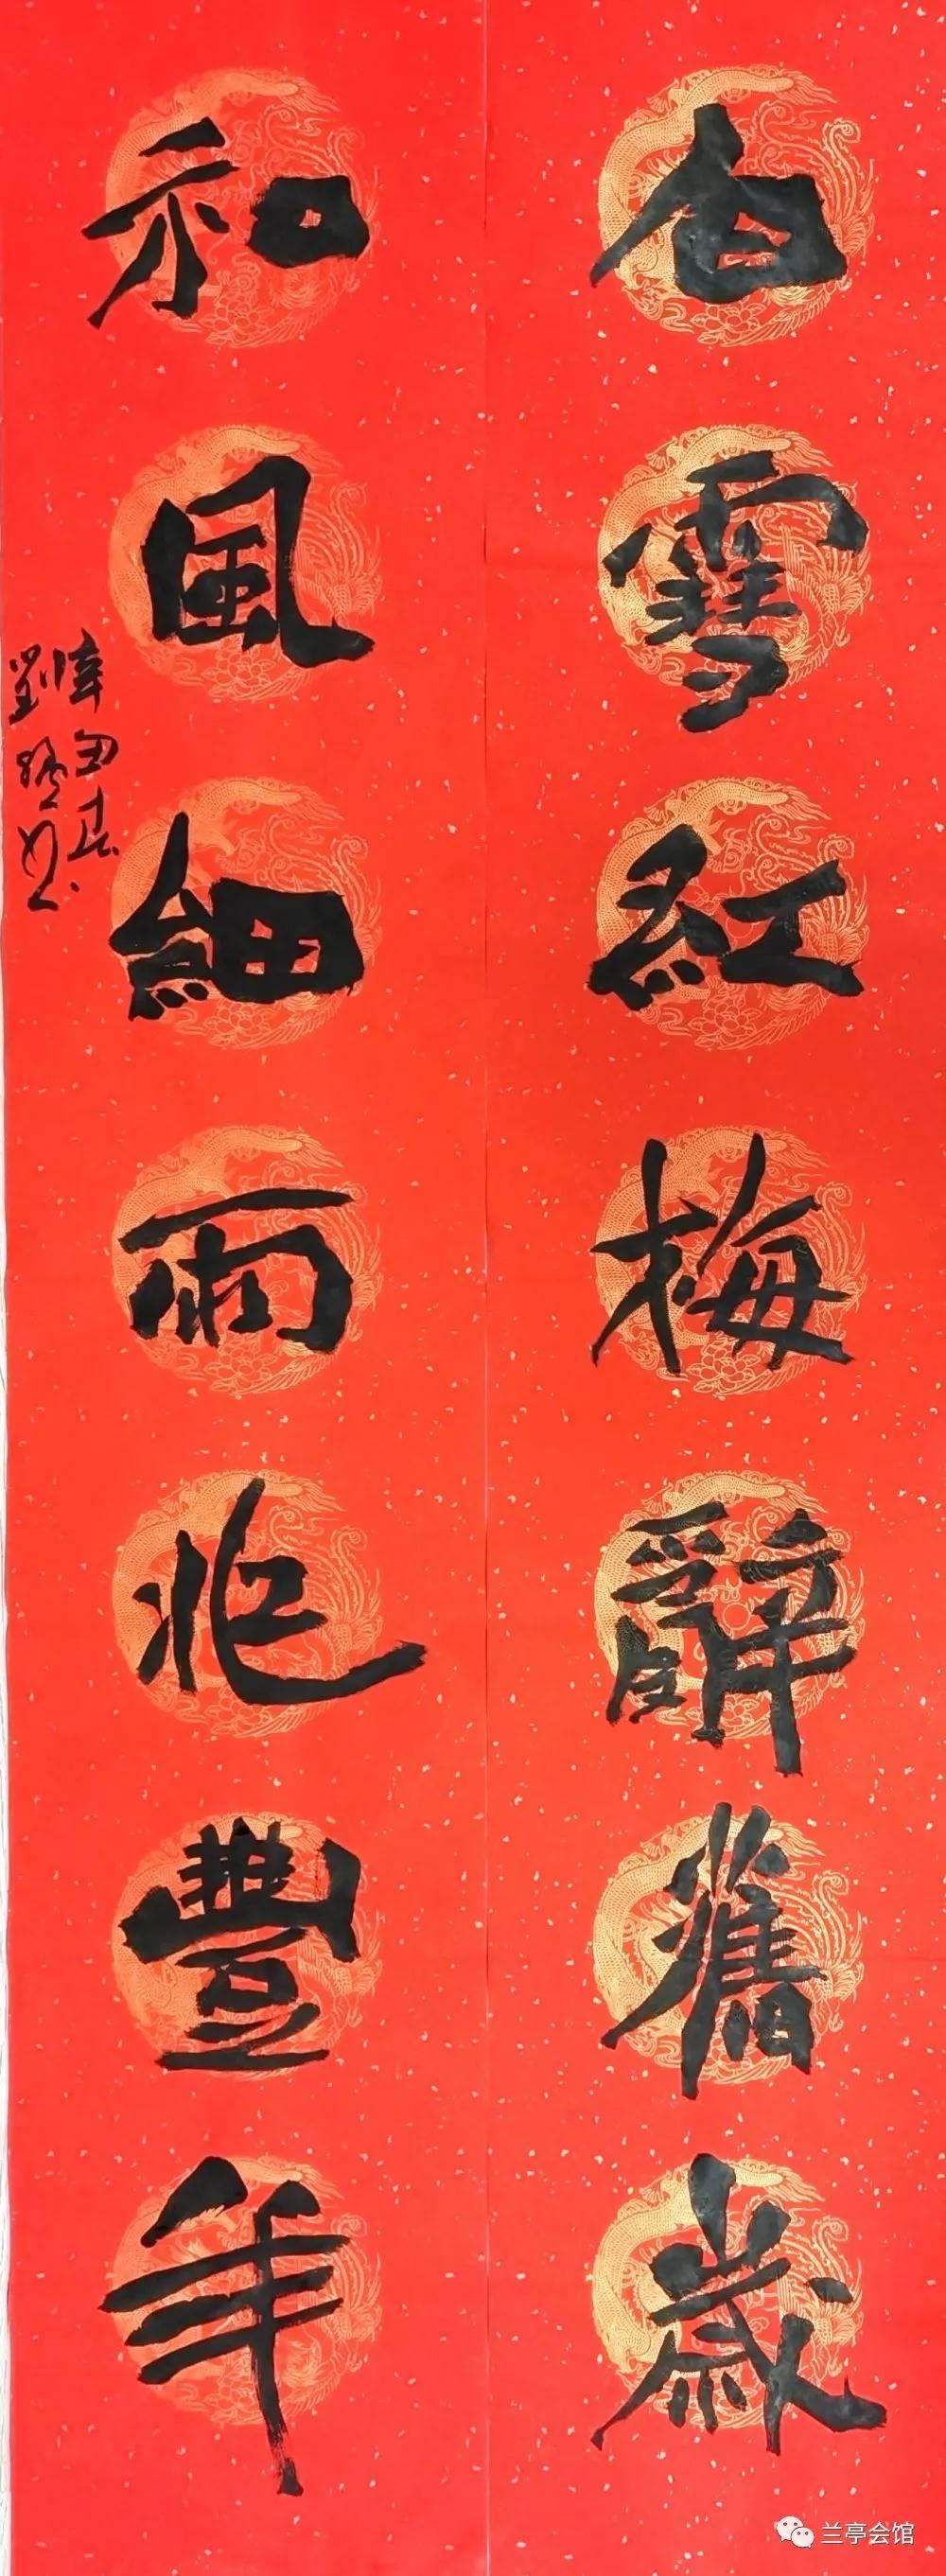 白雪紅梅辭舊歲
和風細雨兆豐年
辛丑春
劉
兰亭会馆